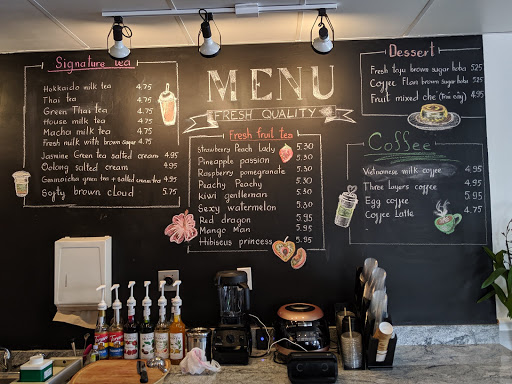 MENU
FRESH QUALITY
Signature tea
Hokkaido milk tea 4.75
Thai tea 4.75
Green Thai tea 4.75
House milk tea 4.75
Macha milk tea 4.75
Fresh milk with brown sugar 4.75
Jasmine Green tea salted cream 4.95
Oolong salted cream 4.95
Genmaicha green tea + salted cream tea 4.95
Softy brown cloud 5.75
Fresh fruit tea
Strawberry Peach Lady 5.30
Pineapple passion 5.30
Raspberry pomegranate 5.30
Peachy Peachy 5.30
kiwi gentleman 5.30
Sexy watermelon 5.30
Red dragon 5.95
Mango Man 5.95
Hibiscus princess 5.95
Dessert
Fresh taju brown sugar boba 5.25
Coffee Flan brown sugar boba 5.75
Fruit mixed che 4.95
Coffee
Vietnamese milk coffee 4.95
Three layers coffee 4.95
Egg coffee 5.95
Coffee Latte 4.75